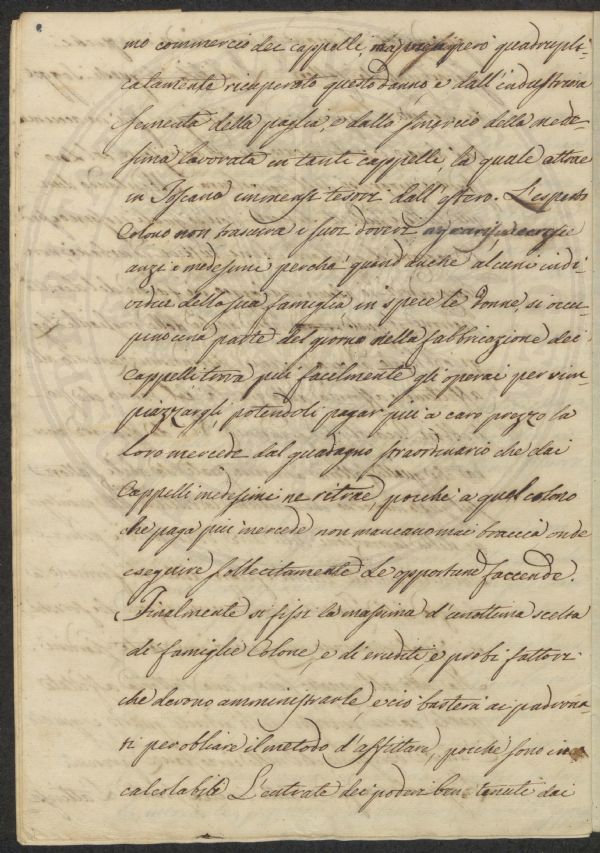 mo commercio dei cappelli, ma vien però quadrupli-
catamente ricuperato questo danno, e dall'industriosa
sementa della paglia, e dallo smercio della mede-
sima lavorata in tanti cappelli, la quale attrae
in Toscana immensi tesori dall'estero. L'esperto
Colono non trascura i suoi doveri
anzi i medesimi perchè quand'anche alcuni indi-
vidui della sua famiglia, in spece le Donne, si occu-
pino una parte del giorno nella fabbricazione dei
Cappelli trova più facilmente gli operai per rim-
piazzargli, potendoli pagar più a caro prezzo la
loro mercede dal guadagno straordinario che dai
Cappelli medesimi ne ritrae, poichè a quel colono
che paga più mercede non mancano mai braccia onde
eseguire sollecitamente le opportune faccende.
Finalmente si fissi la massima d'un'ottima scelta
di famiglie Colone, e di eruditi, e probi fattori
che devono amministrarle, e ciò basterà ai padrona-
ti per obliare il metodo d'affittare, poichè sono in-
calcolabili L'entrate dei poderi ben tenuti dai